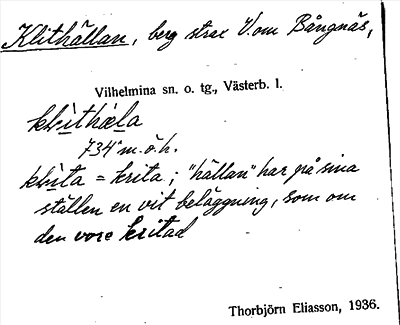 Klithällan, berg strax V. om Bångnäs,
Vilhelmina sn. o. tg., Västerb. l.
klìthæla
734 m.ö.h.
klìta = krita; "hällan" har på sina
ställen en vit beläggning, som om
den vore kritad
Thorbjörn Eliasson, 1936.